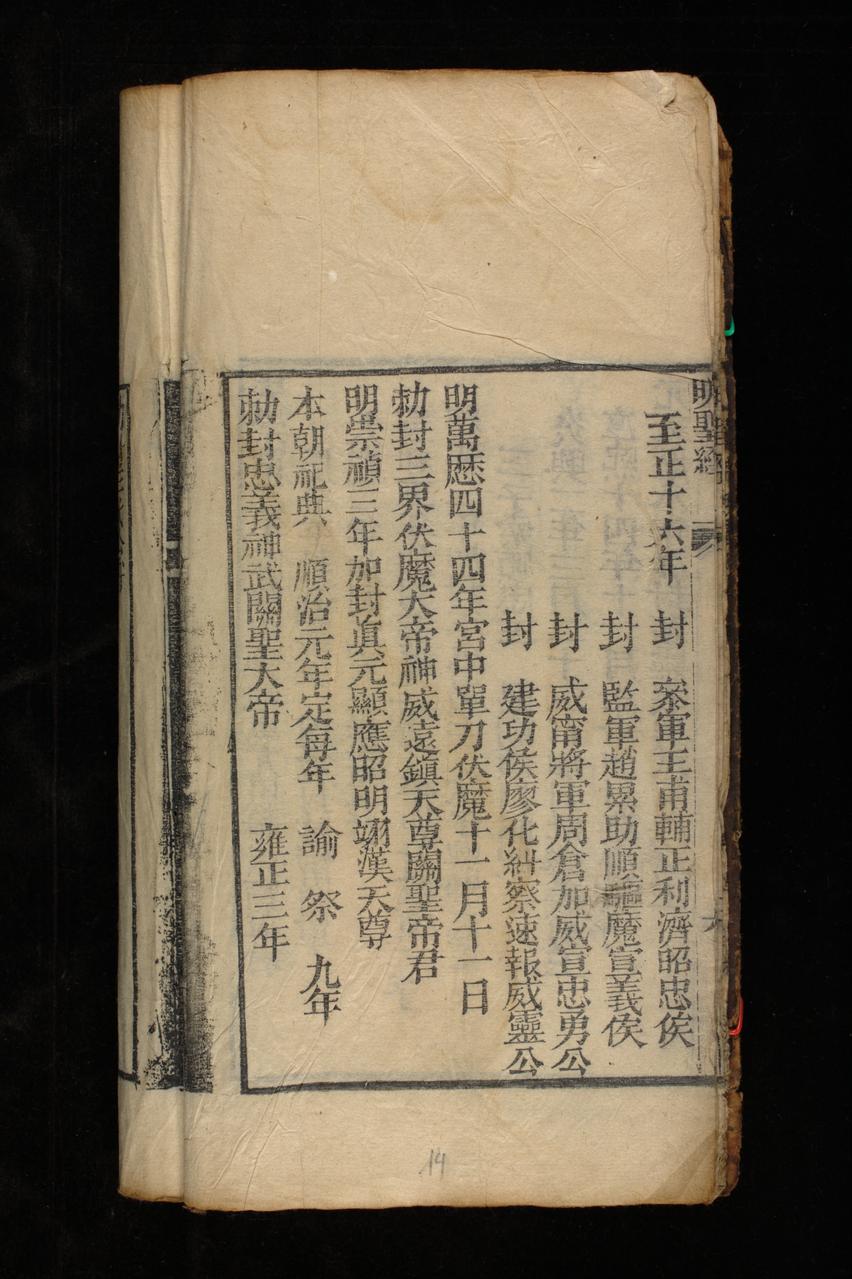 明聖經
至正十六年 封 叅軍王甫輔正利濟昭忠侯
封 監軍趙累助順驅魔宣義侯
封 威甯將軍周倉加威宣忠勇公
封 建功侯廖化糾察速報威靈公
明萬歷四十四年宮中單刀伏魔十一月十一日
勅封三界伏魔大帝神威遠鎮天尊關聖帝君
明崇禎三年加封眞元顯應昭明翊漢天尊
本朝祀典 順治元年定每年 諭祭 九年
勅封忠義神武關聖大帝 雍正三年
14